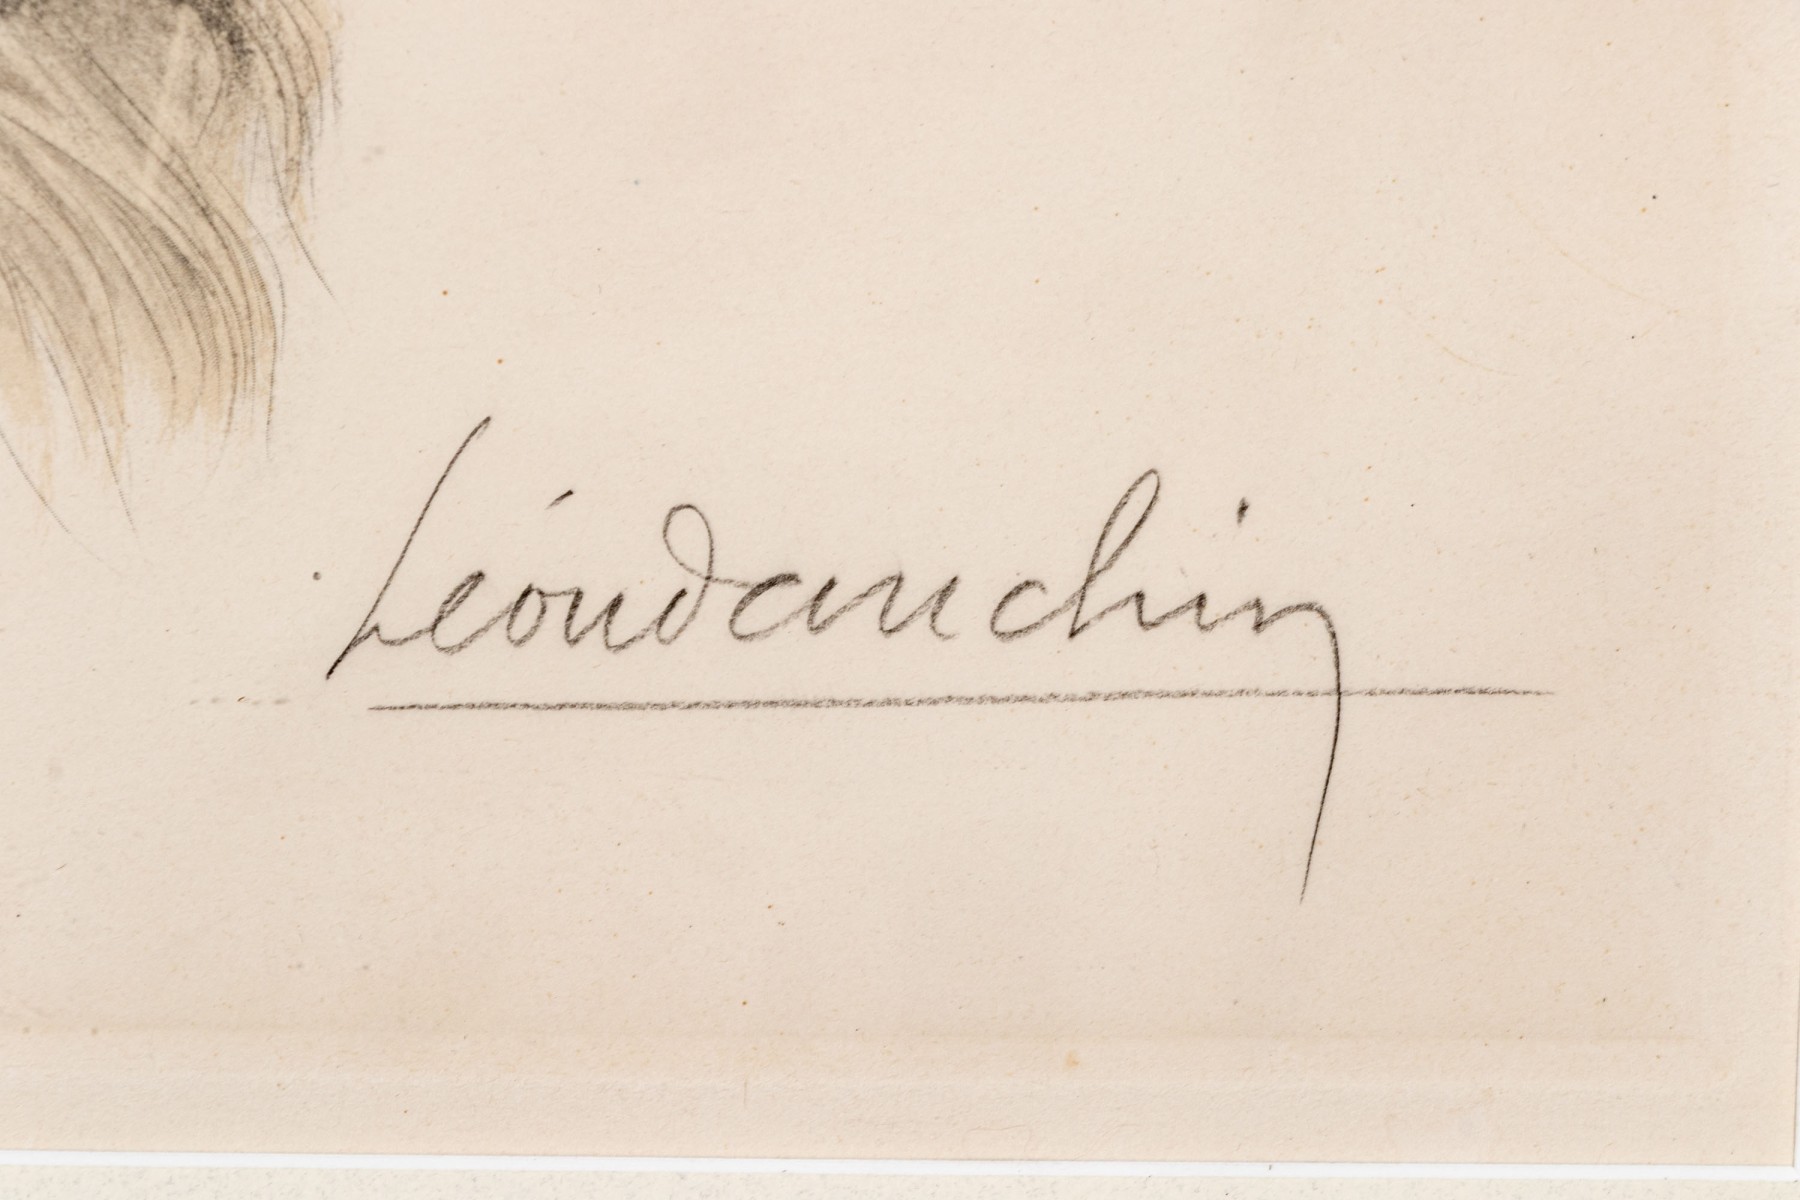 Léon Danchin